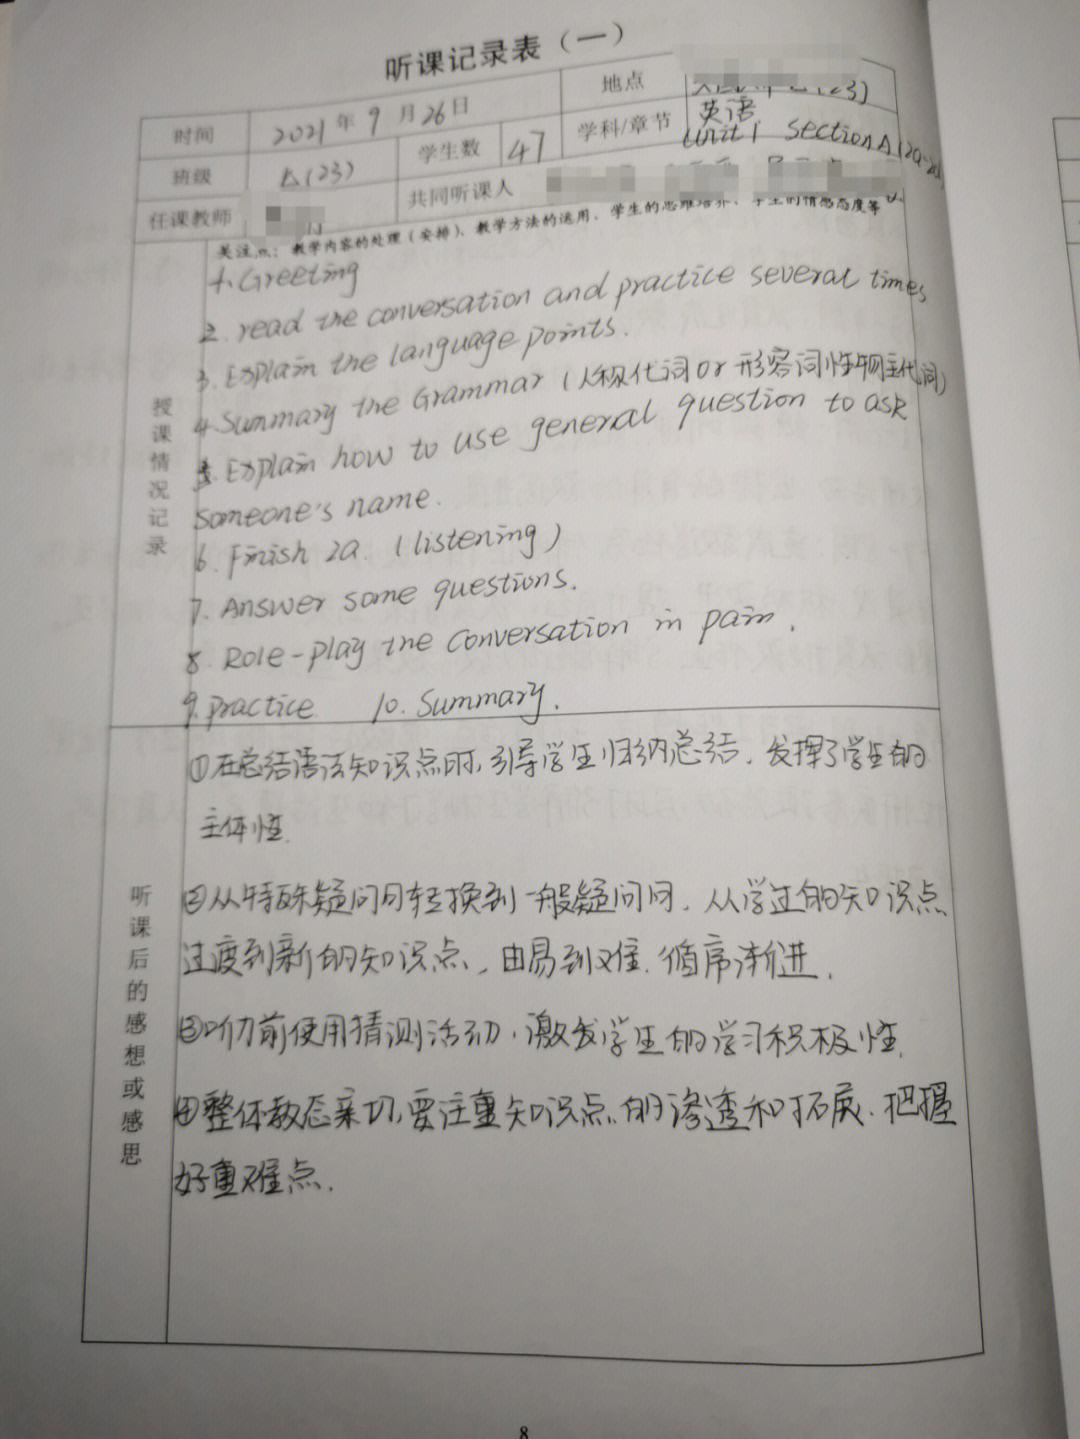 听课记录表（一）
时间 2021年9月26日 地点 (23)
班级 (23) 学生数 47 学科/章节 英语 Unit 1 Section A (2a-2d)
任课教师 共同听课人
关注点：教学内容的处理（安排）、教学方法的运用、学生的思维培养、学生的情感态度等
授课情况记录
1. Greeting
2. read the conversation and practice several times
3. Explain the language points.
4. Summary the Grammar (人称代词 or 形容词性物主代词)
5. Explain how to use general question to ask
someone's name.
6. Finish 2a. (listening)
7. Answer some questions.
8. Role-play the conversation in pairs.
9. practice 10. Summary.
听课后的感想或感思
①在总结语法知识点时,引导学生归纳总结,发挥了学生的
主体性.
②从特殊疑问句转换到一般疑问句,从学过的知识点
过度到新的知识点,由易到难.循序渐进.
③听力前使用猜测活动,激发学生的学习积极性.
④整体教态亲切,要注重知识点的渗透和拓展.把握
好重难点.
8